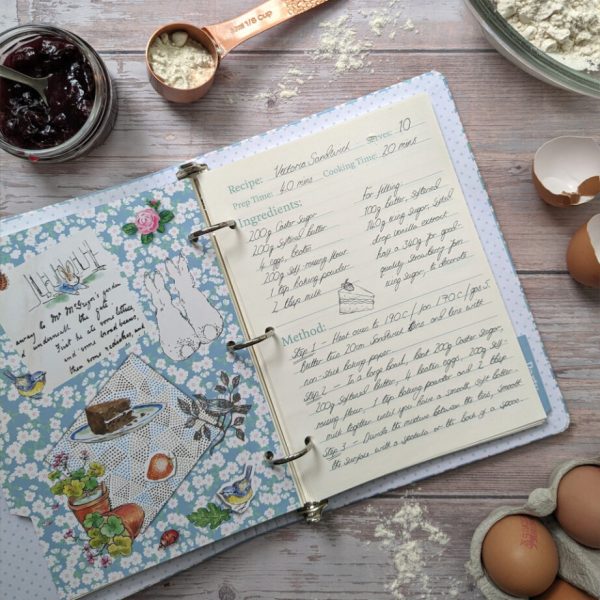 1/8 Cup
Recipe: Victoria Sandwich
Serves: 10
Prep Time: 40 mins Cooking Time: 20 mins
Ingredients:
200g Caster Sugar
200g softened butter
4 eggs, beaten
200g self-raising flour
1 tsp baking powder
2 tbsp milk
For filling
100g butter, softened
140g icing sugar, sifted
drop vanilla extract
half a 340g jar good-
quality Strawberry jam
icing sugar, to decorate
Method:
Step 1 - Heat oven to 190C / fan 170C / gas 5.
butter two 20cm Sandwich tins and line with
non-stick baking paper.
Step 2 - In a large bowl, beat 200g Caster Sugar,
200g Softened butter, 4 beaten eggs, 200g Self-
raising flour, 1 tsp baking powder and 2 tbsp
milk together until you have a smooth, soft batter.
Step 3 - Divide the mixture between the tins, smooth
the surface with a spatula or the back of a spoon.
away to Mr McGregor's garden
underneath the gate
First he ate some lettuces
and some broad beans,
then some radishes, and